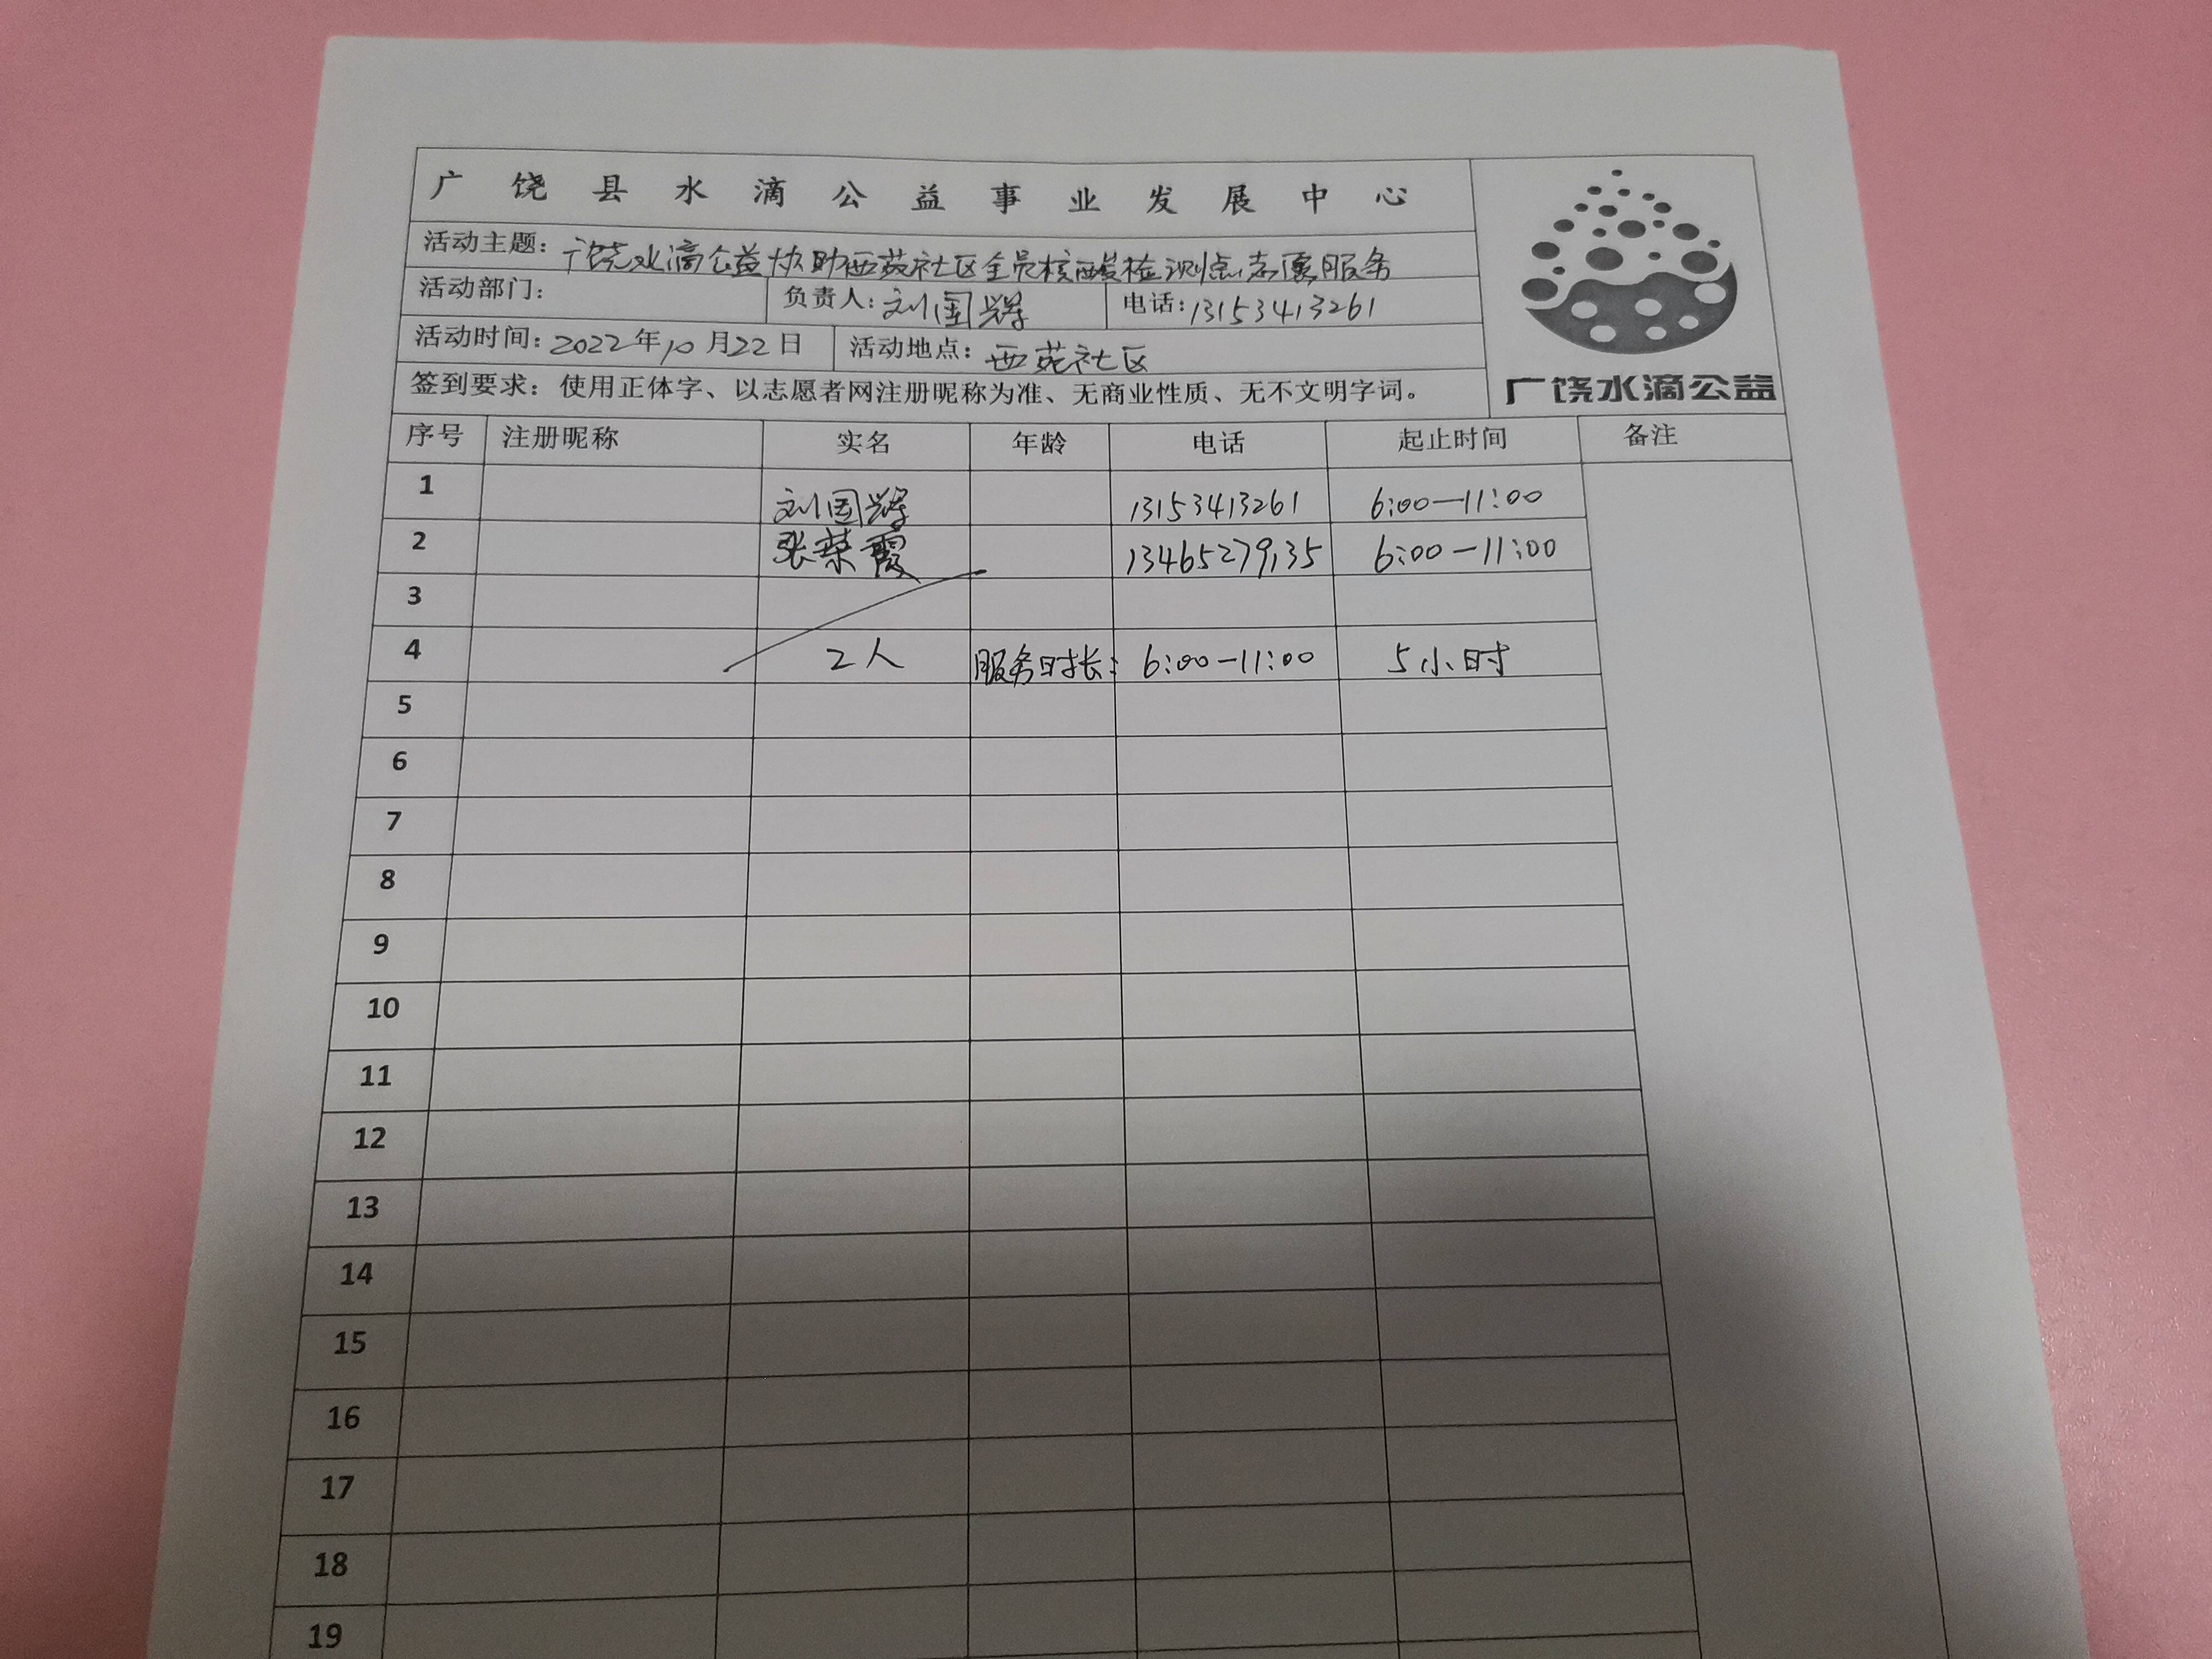 广饶县水滴公益事业发展中心
活动主题：广饶水滴公益协助西苑社区全员核酸检测点志愿服务
活动部门： 负责人：刘国辉 电话：13153413261
活动时间：2022年10月22日 活动地点：西苑社区
签到要求：使用正体字、以志愿者网注册昵称为准、无商业性质、无不文明字词。
广饶水滴公益
序号 注册昵称 实名 年龄 电话 起止时间 备注
1 刘国辉 13153413261 6:00—11:00
2 张荣霞 13465279135 6:00—11:00
3
4 2人 服务时长：6:00—11:00 5小时
5
6
7
8
9
10
11
12
13
14
15
16
17
18
19